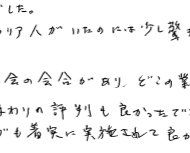 でした。
リア人がいたのには少し驚
会の会合があり、どこの業
まわりの評判も良かったで
でも着実に実施出来て良か